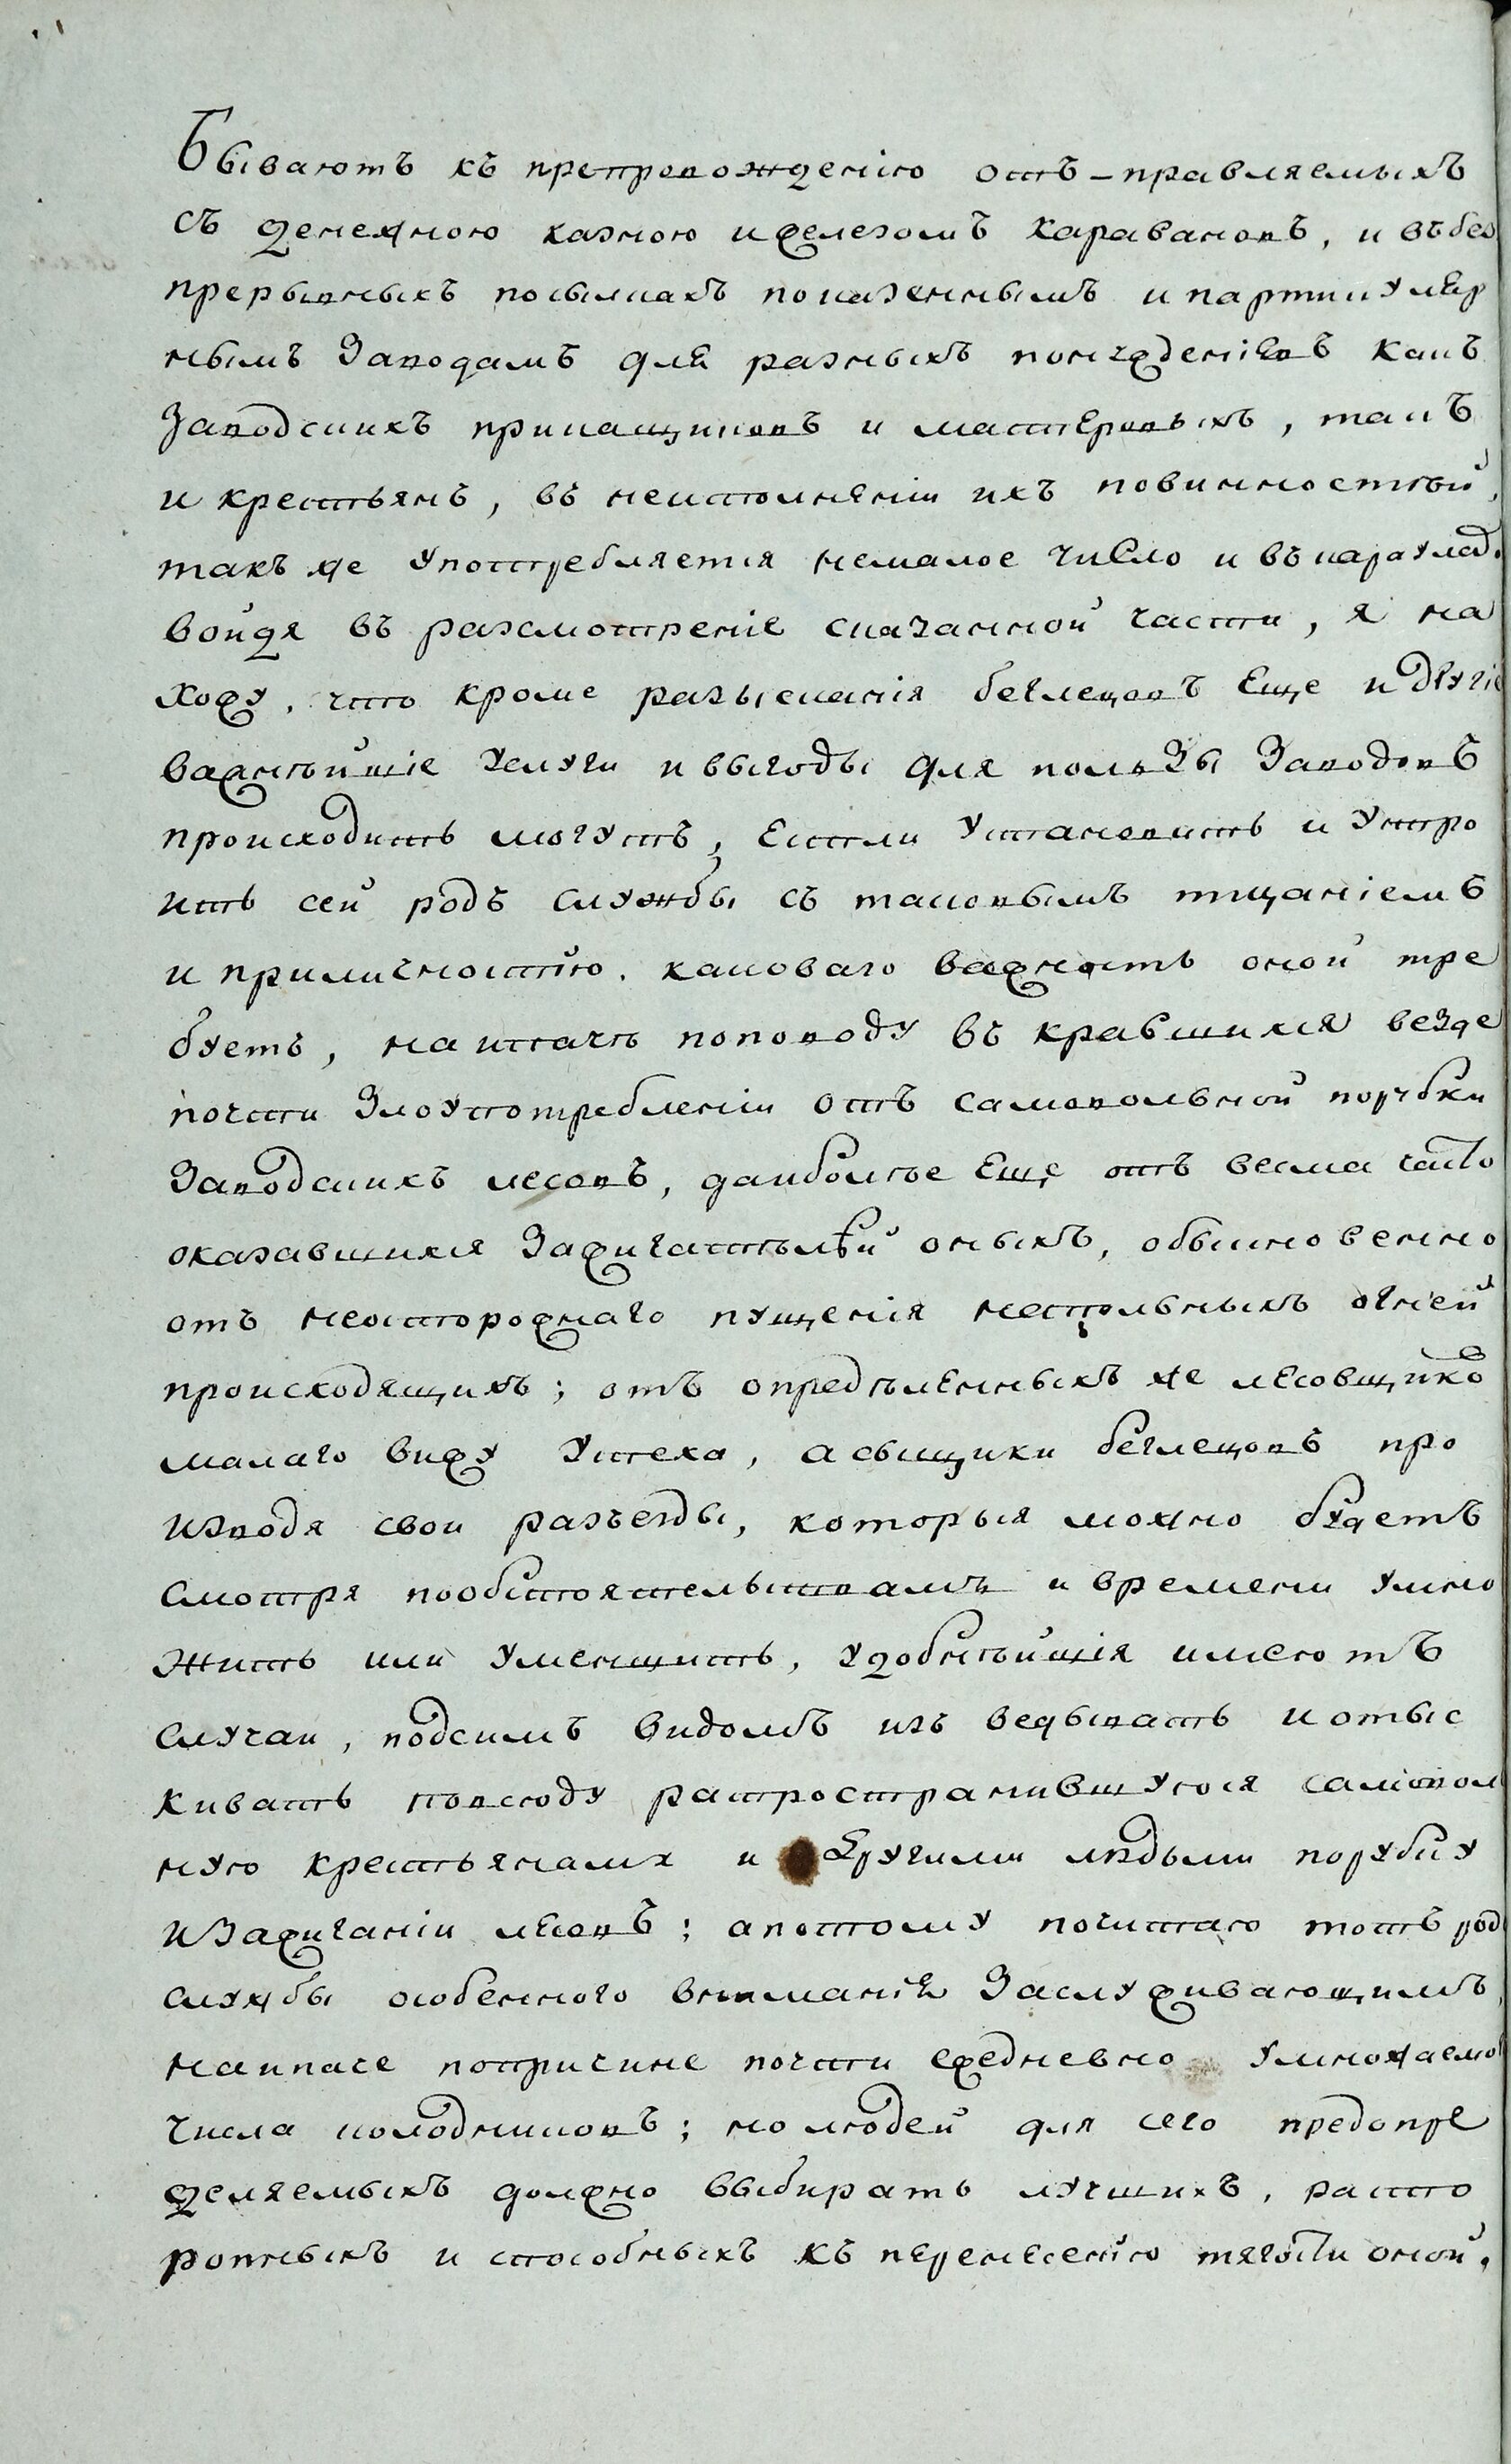 Бываютъ къ препровожденiю отъ-правляемыхъ
съ денежною казною и железомъ каравановъ, и въ без
прерывныхъ посылкахъ по казеннымъ и партикуляр
нымъ Заводамъ для разныхъ понужденiевъ какъ
Заводскихъ прикащиковъ и мастеровыхъ, такъ
и крестьянъ, въ неисполненiи ихъ повинностѣй,
такъ же употребляется немалое число и въ караулах.
войдя въ разсмотренiе сказанной части, я на
хожу, что кроме разысканiя беглецовъ еще и другiе
важнѣйшiе услуги и выгоды для пользы Заводовъ
происходить могутъ, Естли установить и устро
ить сей родъ службы съ таковымъ тщанiемъ
и приличностiю. каковаго важность оной тре
буетъ, наипачѣ по поводу въ кравшихся везде
почти Злоупотребленiи отъ самовольной порубки
Заводскихъ лесовъ, да и болѣе Еще отъ весма часто
оказавшихся Зажигательѣй оныхъ, обыкновенно
отъ неосторожнаго пущенiя непольныхъ огней
происходящихъ; отъ определенныхъ же лесовщиков
малаго вижу успеха, а сыщики беглецовъ про
изводя свои разъезды, которыя можно будетъ
смотря по обстоятельствамъ и времени умно
жить или уменшить, удобнѣйшiя имеютъ
случаи, подсимъ видомъ изъ ведывать и отыс
кивать повсюду распространившуюся самовол
ную крестьянами и другими людьми порубку
и Зажиганiи лесовъ; а потому почитаю тотъ род
службы особенного вниманiя Заслуживающимъ,
наипаче по причине почти ежедневно умножаемо
числа колодниковъ; но людей для сего предопре
деляемыхъ должно выбирать лучшихъ, расто
ропныхъ и способныхъ къ перенесенiю тягости оной.